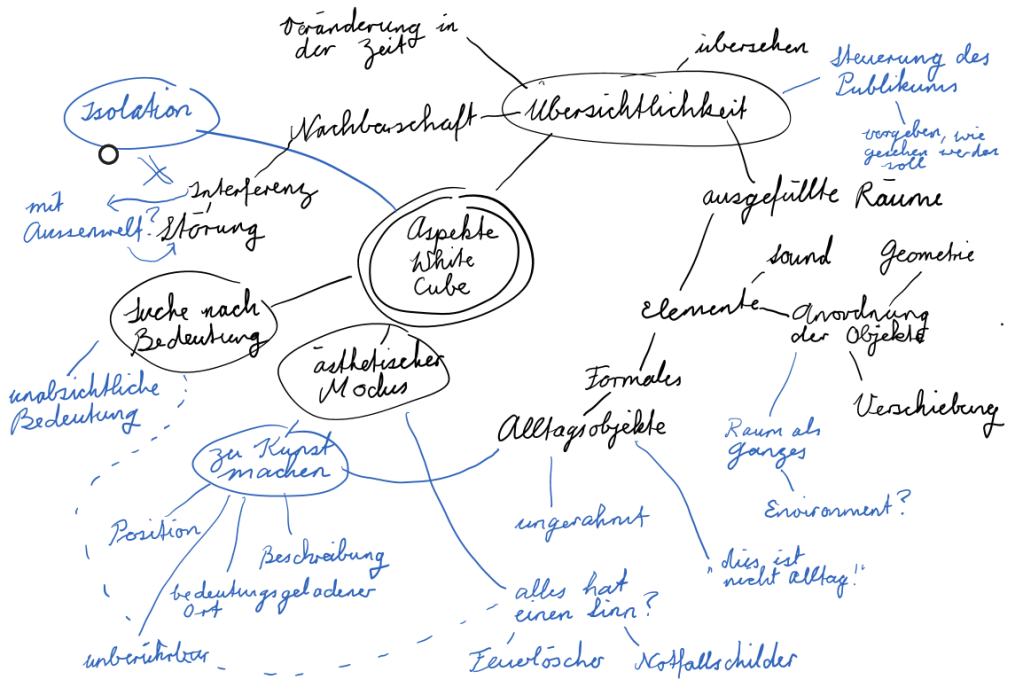 Veränderung in
der Zeit
übersehen
Steuerung des
Publikums
Isolation
Nachbarschaft
Übersichtlichkeit
vorgeben, wie
gesehen werden
soll
Interferenz
ausgefüllte Räume
mit
Aussenwelt?
Störung
Aspekte
White
Cube
Sound
Geometrie
Suche nach
Bedeutung
Elemente
Anordnung
der Objekte
ästhetischer
Modus
Formales
unabsichtliche
Bedeutung
Verschiebung
Alltagsobjekte
zu Kunst
machen
Raum als
ganzes
Environment?
Position
ungerahmt
Beschreibung
"dies ist
nicht Alltag!"
bedeutungsgeladener
Ort
alles hat
einen Sinn?
unberührbar
Feuerlöscher
Notfallschilder